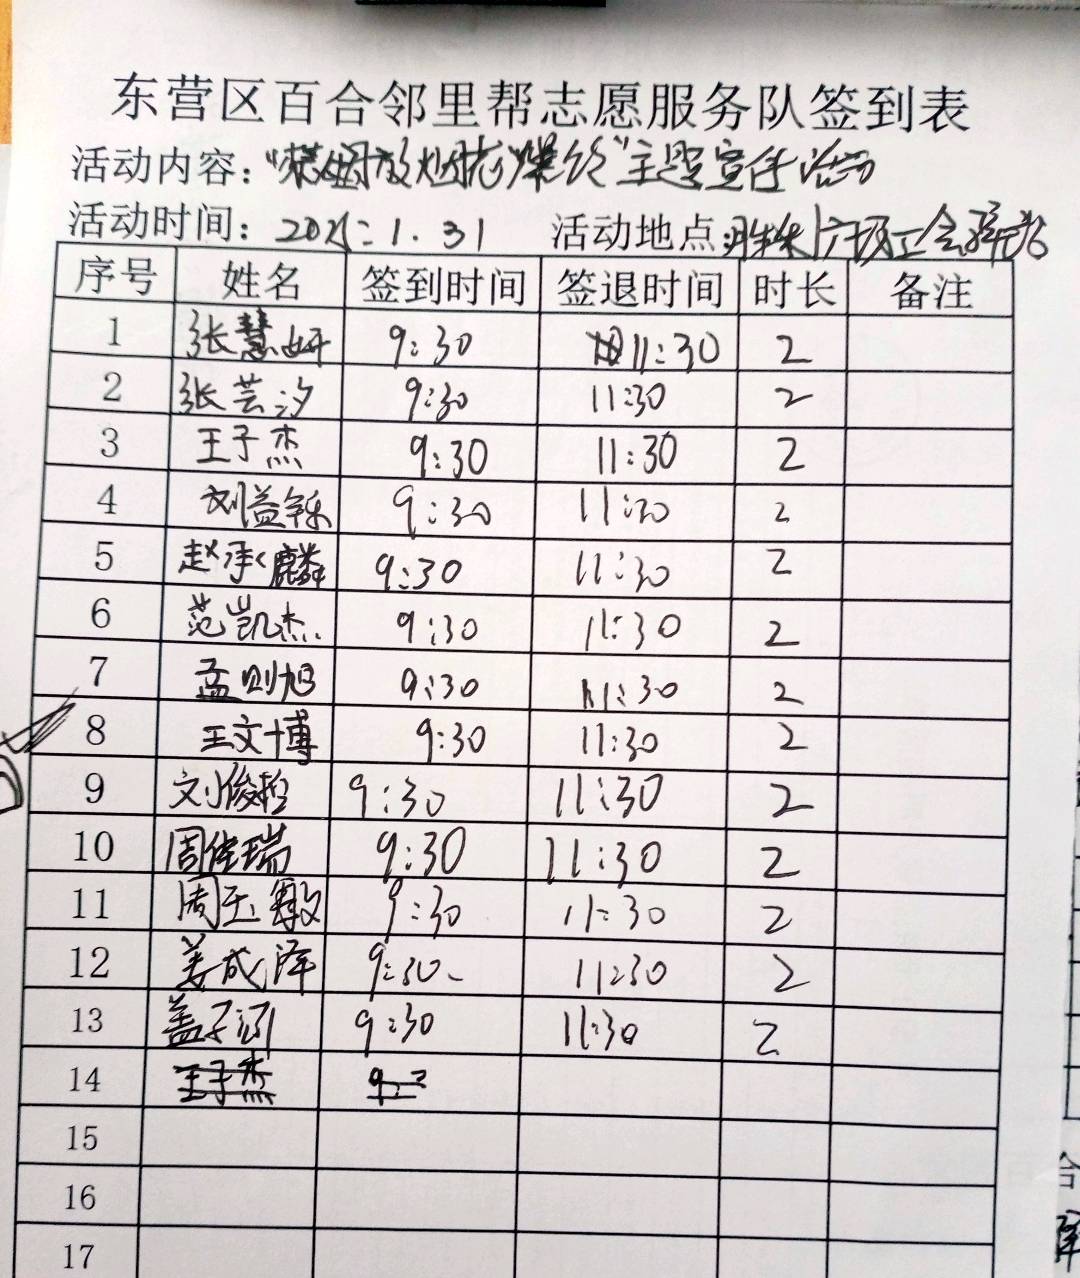 东营区百合邻里帮志愿服务队签到表
活动内容："禁燃放烟花爆竹"主题宣传活动
活动时间: 1.31 活动地点:
序号 姓名 签到时间 签退时间 时长 备注
1 张慧妍 9:30 11:30 2
2 张芸汐 9:30 11:30 2
3 王子杰 9:30 11:30 2
4 刘益铄 9:30 11:30 2
5 赵承麟 9:30 11:30 2
6 范凯杰 9:30 11:30 2
7 孟则旭 9:30 11:30 2
8 王文博 9:30 11:30 2
9 刘俊哲 9:30 11:30 2
10 周佳瑞 9:30 11:30 2
11 周玉 9:30 11:30 2
12 姜成泽 9:30 11:30 2
13 盖子涵 9:30 11:30 2
14 王子杰
15
16
17